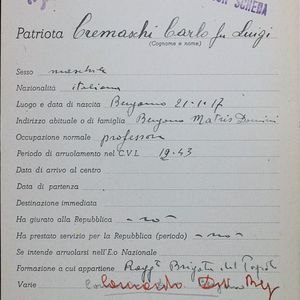 SCHEDA
Patriota Cremaschi Carlo fu Luigi
(Cognome e nome)
Sesso maschile
Nazionalità italiana
Luogo e data di nascita Bergamo 21-1-17
Indirizzo abituale o di famiglia Bergamo Matris Domini
Occupazione normale professore
Periodo di arruolamento nel C.V.L. 19-43
Data di arrivo al centro
Data di partenza
Destinazione immediata
Ha giurato alla Repubblica - no -
Ha prestato servizio per la Repubblica (periodo) - no -
Se intende arruolarsi nell'Eo Nazionale
Formazione a cui appartiene Brigate del Popolo
Varie